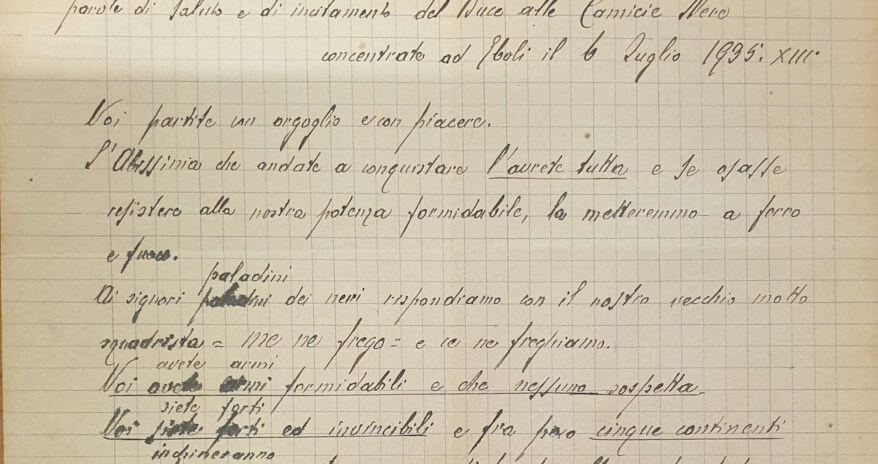 parole di saluto e di incitamento del Duce alle Camicie Nere
concentrate ad Eboli il 6 Luglio 1935. XIII.
Voi partite con orgoglio e con piacere.
L'Abissinia che andate a conquistare l'avrete tutta e se osasse
resistere alla nostra potenza formidabile, la metteremmo a ferro
e fuoco.
paladini
Ai signori paladini dei neri rispondiamo con il nostro vecchio motto
squadrista = me ne frego = e ce ne freghiamo.
avete armi
Voi avete armi formidabili e che nessuno sospetta
siete forti
Voi siete forti ed invincibili e fra poco cinque continenti
inchineranno